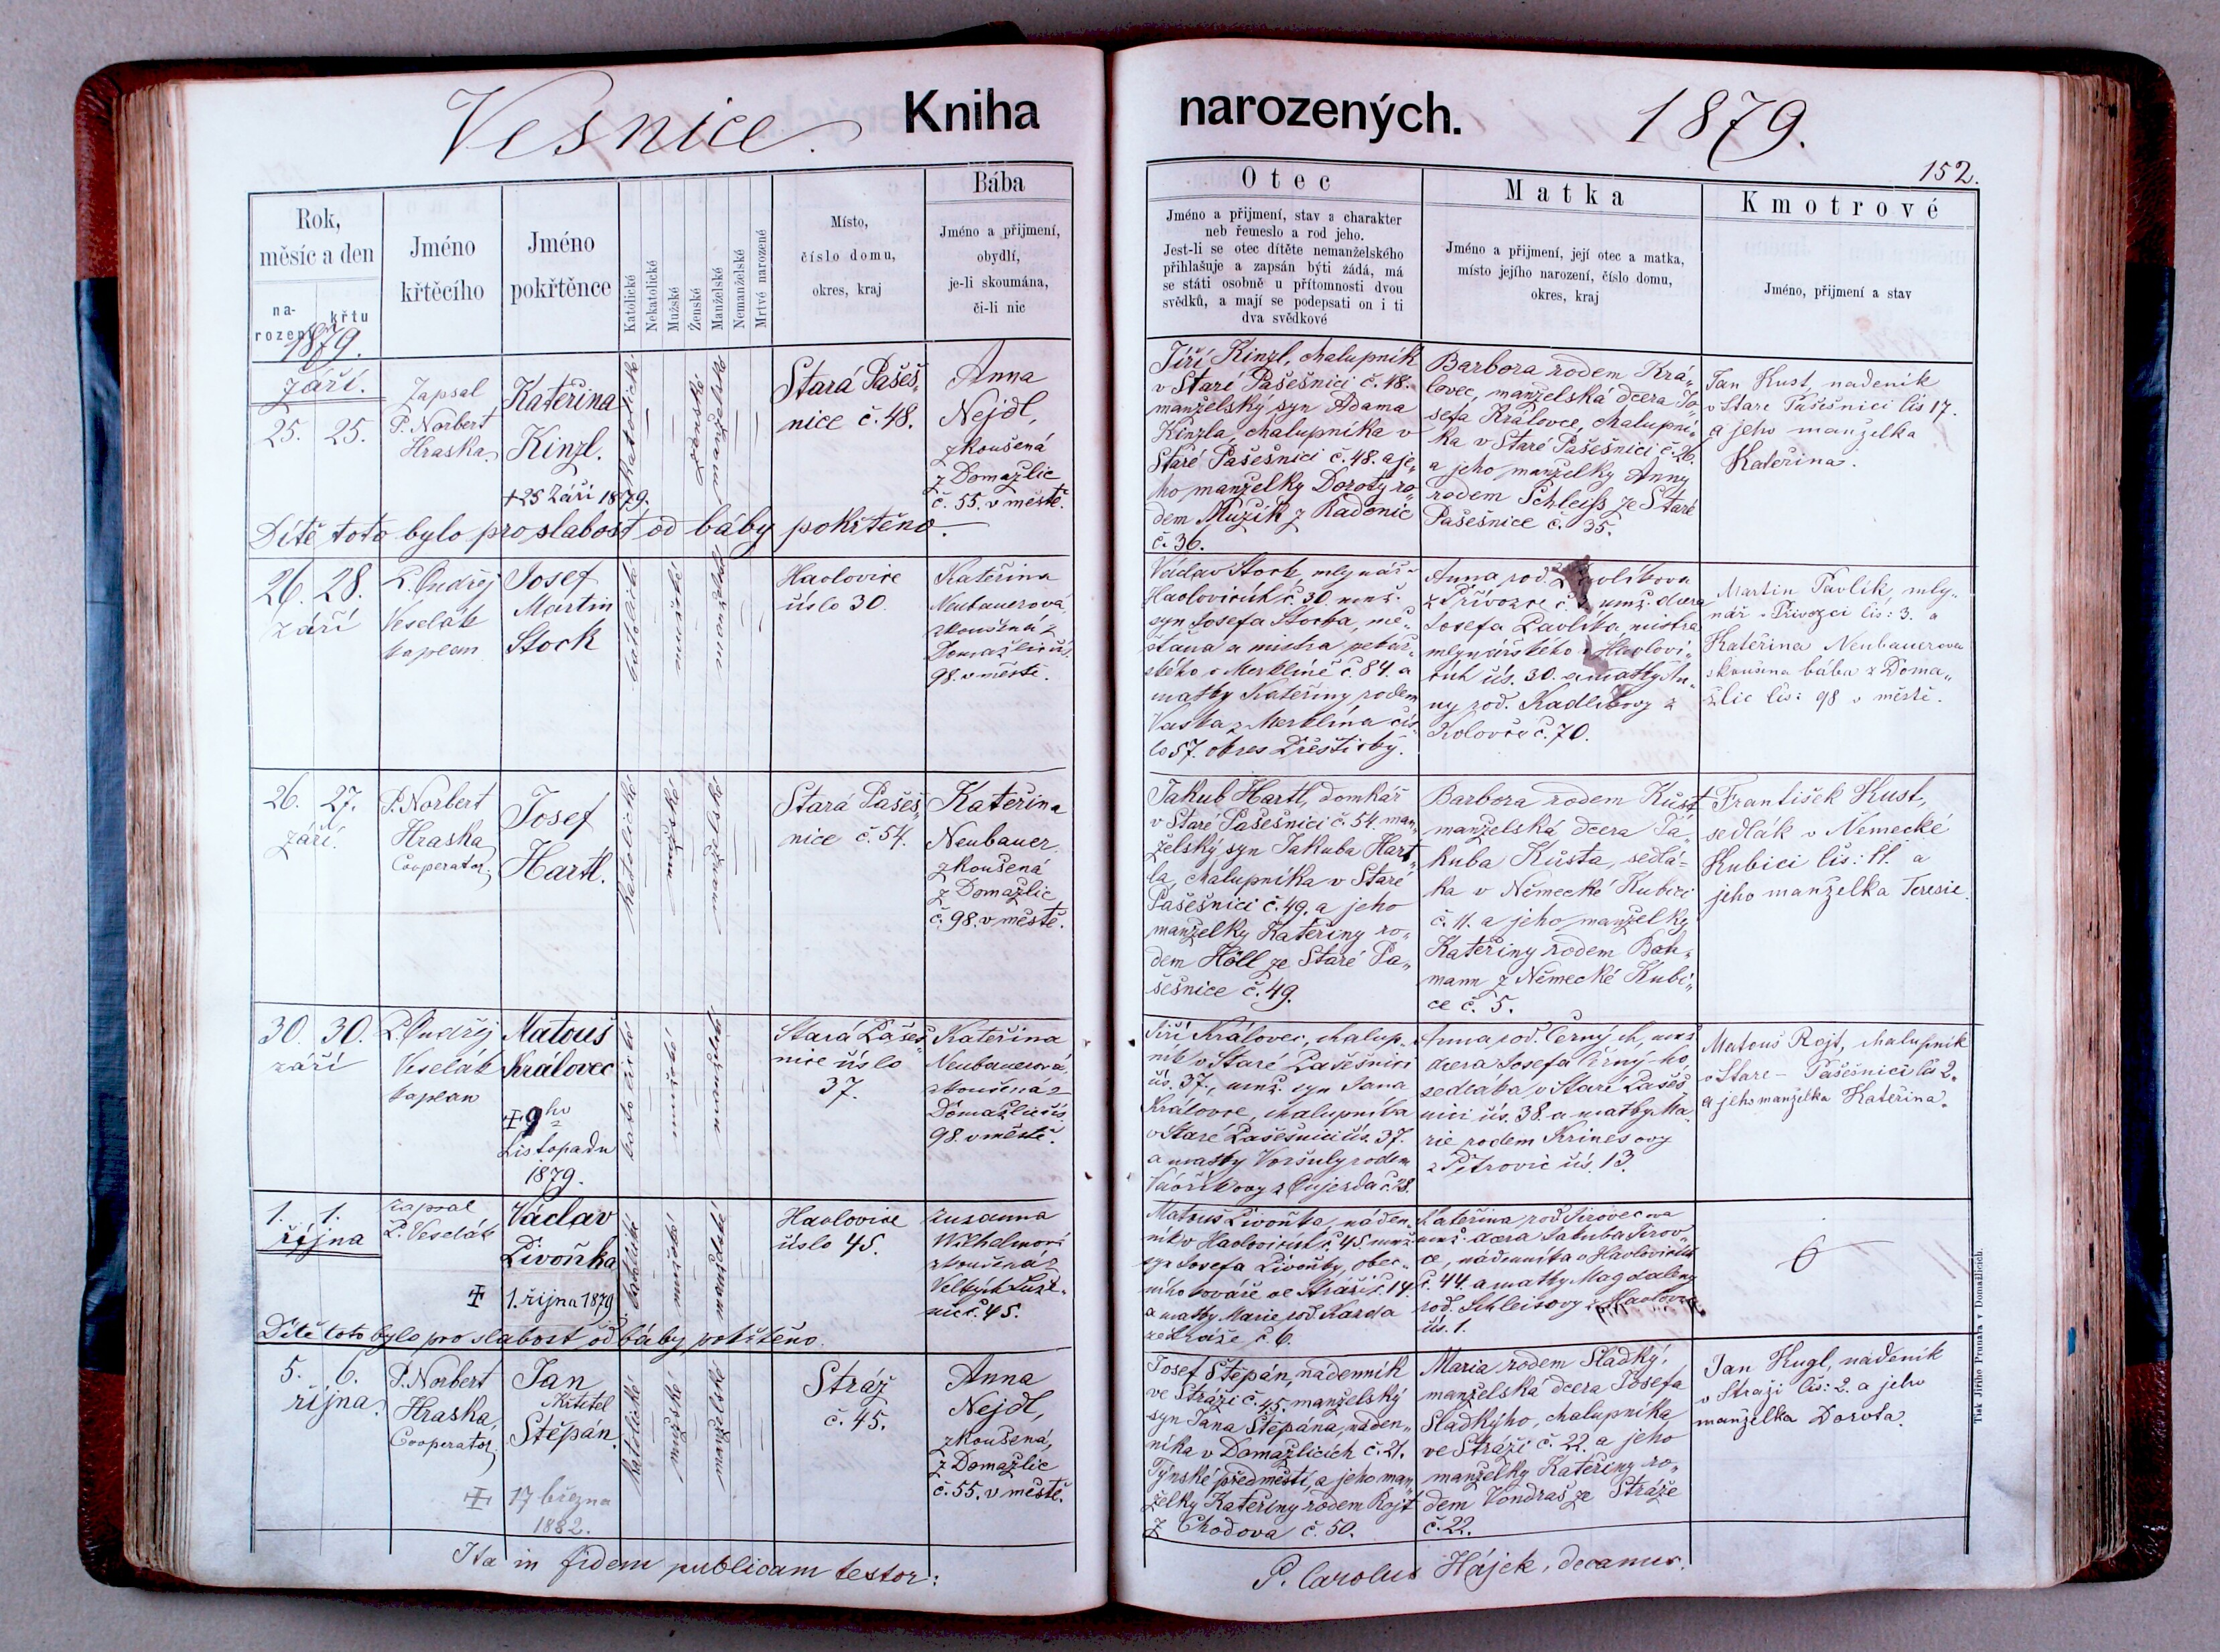 Vesnice. Kniha narozených. 1879.
152.
Rok,
měsíc a den
na-
rozený
křtu
Jméno
křtěcího
Jméno
pokřtěnce
Katolické
Nekatolické
Mužské
Ženské
Manželské
Nemanželské
Mrtvě narozené
Místo,
číslo domu,
okres, kraj
Bába
Jméno a přijmení,
obydlí,
je-li skoumána,
či-li nic
Otec
Jméno a přijmení, stav a charakter
neb řemeslo a rod jeho.
Jest-li se otec dítěte nemanželského
přihlašuje a zapsán býti žádá, má
se státi osobně u přítomnosti dvou
svědků, a mají se podepsati on i ti
dva svědkové
Matka
Jméno a přijmení, její otec a matka,
místo jejího narození, číslo domu,
okres, kraj
Kmotrové
Jméno, přijmení a stav
1879.
září.
25. 25.
Zapsal
P. Norbert
Hraska
Kateřina
Kinzl.
+ 25 září 1879.
katolické
ženské
manželské
Stará Pašeš„
nice č. 48.
Anna
Nejdl,
zkoušená
z Domažlic
č. 55. v městě.
Jiří Kinzl, chalupník
v Staré Pašešnici č. 48.
manželský syn Adama
Kinzla, chalupníka v
Staré Pašešnici č. 48. a je„
ho manželky Doroty ro„
dem Muzik z Radonic
č. 36.
Barbora rodem Krá„
lovec, manželská dcera Jo„
sefa Královce, chalupní„
ka v Staré Pašešnici č. 26.
a jeho manželky Anny
rodem Schleiss ze Staré
Pašešnice č. 35.
Jan Kust, nadeník
v Stare Pašešnici čís 17.
a jeho manželka
Kateřina.
Dítě toto bylo pro slabost od báby pokřtěno.
26. 28.
září
P. Ondřej
Veselák
kaplan
Josef
Martin
Stock
katolické
mužské
manželské
Havlovice
číslo 30.
Kateřina
Neubauerová
zkoušená z
Domažlic čís.
98. v městě.
Václav Stock, mlynář v
Havlovicích č. 30. manž.
syn Josefa Stocka, mě„
šťana a mistra pekař„
ského v Merklíně č. 84. a
matky Kateřiny rodem
Vaska z Merklína čís
lo 57. okres Přeštický.
Anna rod. Pavlíkova
z Přívozce č. manž. dcera
Josefa Pavlíka mistra
mlynářského v Havlovi„
cích čís. 30. a matky An„
ny rod. Kadlikovy z
Kolovče č. 70.
Martin Pavlík, mly„
nář v Přivozci čís: 3. a
Kateřina Neubauerova
skoušena bába z Doma„
žlic čís: 98 v městě.
26. 27.
září.
P. Norbert
Hraska
Cooperator,
Josef
Hartl.
katolické
mužské
manželské
Stará Pašeš„
nice č. 54.
Kateřina
Neubauer
zkoušená
z Domažlic
č. 98. v městě.
Jakub Hartl, domkář
v Staré Pašešnici č. 54. man„
želský syn Jakuba Hart„
la, chalupníka v Staré
Pašešnici č. 49. a jeho
manželky Kateřiny ro„
dem Höll ze Staré Pa„
šešnice č. 49.
Barbora rodem Kůst
manželská dcera Ja„
kuba Kůsta, sedlá„
ka v Německé Kubici
č. 11. a jeho manželky
Kateřiny rodem Bah„
mann z Německé Kubi„
ce č. 5.
František Kust,
sedlák v Německé
Kubici čís: 11. a
jeho manželka Teresie.
30. 30.
září
P. Ondřej
Veselák
kaplan
Matouš
Královec
9ho
Listopadu
1879.
katolické
mužské
manželské
Stará Pašeš„
nice číslo
37.
Kateřina
Neubauerová,
zkoušená z
Domažlic čís
98. v městě.
Jiří Královec, chalup„
ník v Staré Pašešnici
čís. 37., manž. syn Jana
Královce, chalupníka
v Staré Pašešnici čís. 37.
a matky Voršuly rodem
z Oujezda č. 28.
Anna rod. Černých, manž
dcera Josefa Černýho,
sedláka v Staré Pašeš
nici čís. 38. a matky Ma„
rie rodem Krinesovy
z Petrovic čís. 13.
Matouš Rojt, chalupník
v Stare - Pašešnici čís 2.
a jeho manželka Kateřina.
1. 1.
října
zapsal
P. Veselák
Václav
Livoňka
1. října 1879
katolické
mužské
manželské
Havlovice
číslo 45.
Zuzanna
Wilhelmová
zkoušená z
č. 45.
Matouš Livoňka, náden„
ník v Havlovicích č. 45. manž.
syn Josefa Livoňky, obec„
ního kováře ve Stráži č. 14.
a matky Marie rod. Karda
ze Stráže č. 6.
Kateřina rod. Jirovecova
manž. dcera Jakuba Jirov„
ce, nádenníka v Havlovicích
č. 44. a matky Magdaleny
rod. Schleisovy z Havlovic
čís. 1.
Dítě toto bylo pro slabost od báby pokřtěno.
5. 6.
října.
P. Norbert
Hraska,
Cooperator,
Jan
Křtitel
Štěpán.
17 března
1882.
katolické
mužské
manželské
Stráž
č. 45.
Anna
Nejdl,
zkoušená,
z Domažlic
č. 55. v městě.
Josef Štepán, nádenník
ve Stráži č. 45. manželský
syn Jana Štěpána, náden„
níka v Domažlicích č. 21.
Týnské předměstí, a jeho man„
želky Kateřiny rodem Rojt
z Chodova č. 50.
Maria rodem Sladký,
manželská dcera Josefa
Sladkýho, chalupníka
ve Stráži č. 22. a jeho
manželky Kateřiny ro„
dem Vondraš ze Stráže
č. 22.
Jan Kugl, nadeník
v Straži čís: 2. a jeho
manželka Dorota.
Ita in fidem publicam testor:
P. Carolus Hájek, decanus.
Tisk Jiřího Prunara v Domažlicích.